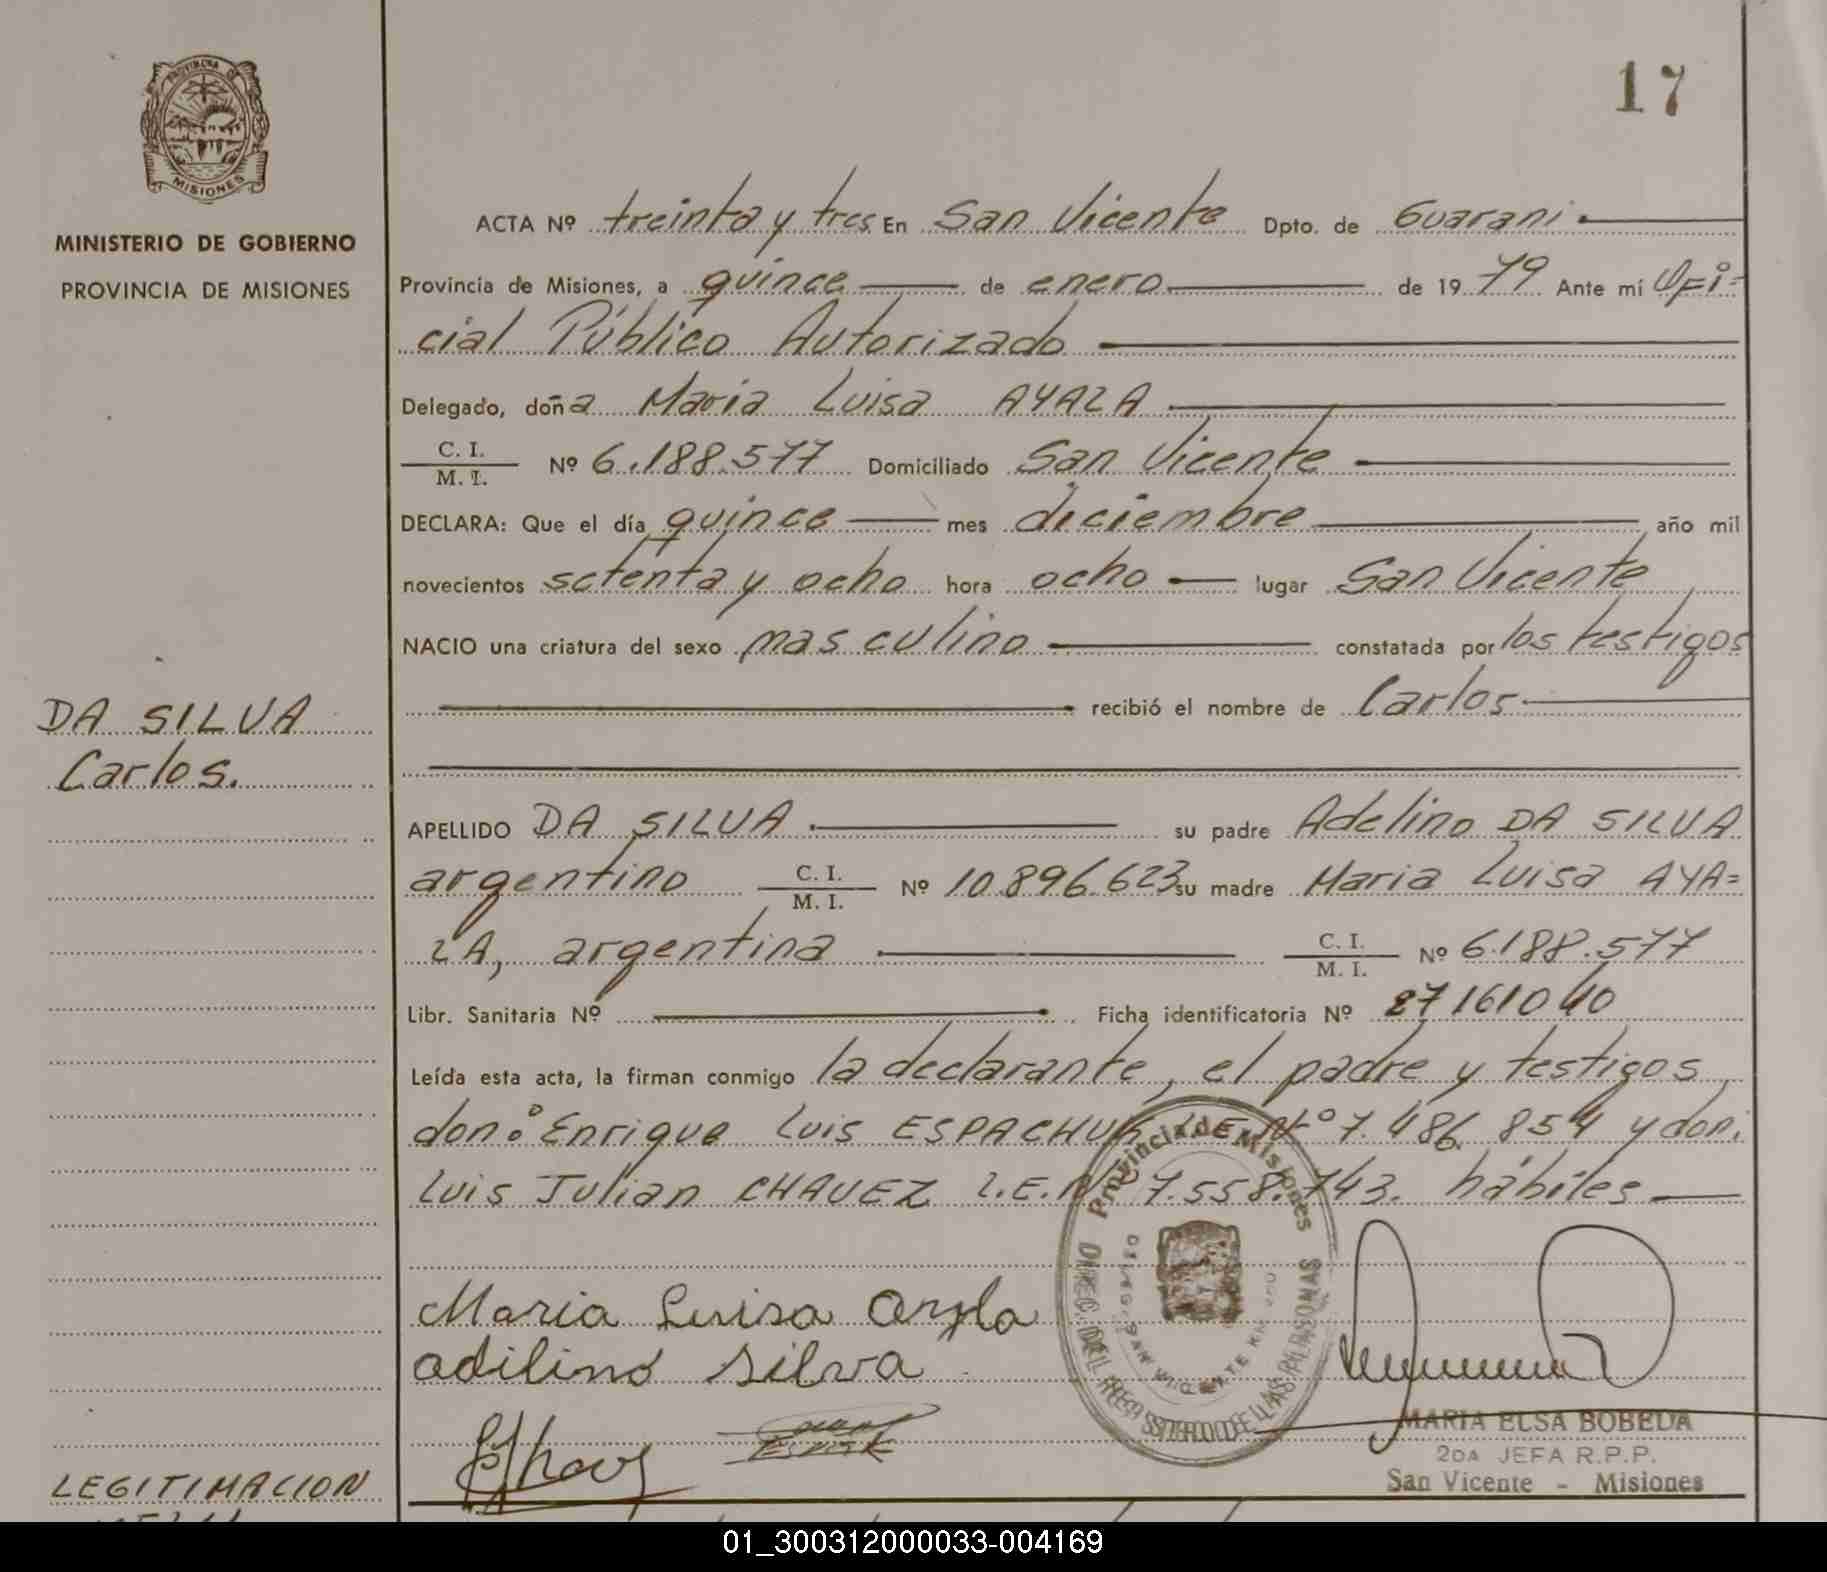 17
PROVINCIA DE
MISIONES
MINISTERIO DE GOBIERNO
PROVINCIA DE MISIONES
ACTA Nº treinta y tres En San Vicente Dpto. de Guarani
Provincia de Misiones, a quince de enero de 1979 Ante mí Ofi=
cial Público Autorizado
Delegado, doña Maria Luisa AYALA
C. I.
M. I. Nº 6.188.577 Domiciliado San Vicente
DECLARA: Que el día quince mes diciembre año mil
novecientos setenta y ocho hora ocho lugar San Vicente
NACIO una criatura del sexo masculino constatada por los testigos
recibió el nombre de Carlos
DA SILVA
Carlos.
APELLIDO DA SILVA su padre Adelino DA SILVA
argentino C. I.
M. I. Nº 10.896.623 su madre Maria Luisa AYA=
LA, argentina C. I.
M. I. Nº 6.188.577
Libr. Sanitaria Nº Ficha identificatoria Nº 27161040
Leída esta acta, la firman conmigo la declarante, el padre y testigos
don: Enrique Luis Nº 7.486.854 y don:
Luis Julian CHAVEZ L.E. Nº 7.558.743. hábiles
Provincia de Misiones
Maria Luisa Ayala
adilino Silva
MARIA ELSA BOBEDA
2DA JEFA R.P.P.
San Vicente - Misiones
LEGITIMACION
01_300312000033-004169